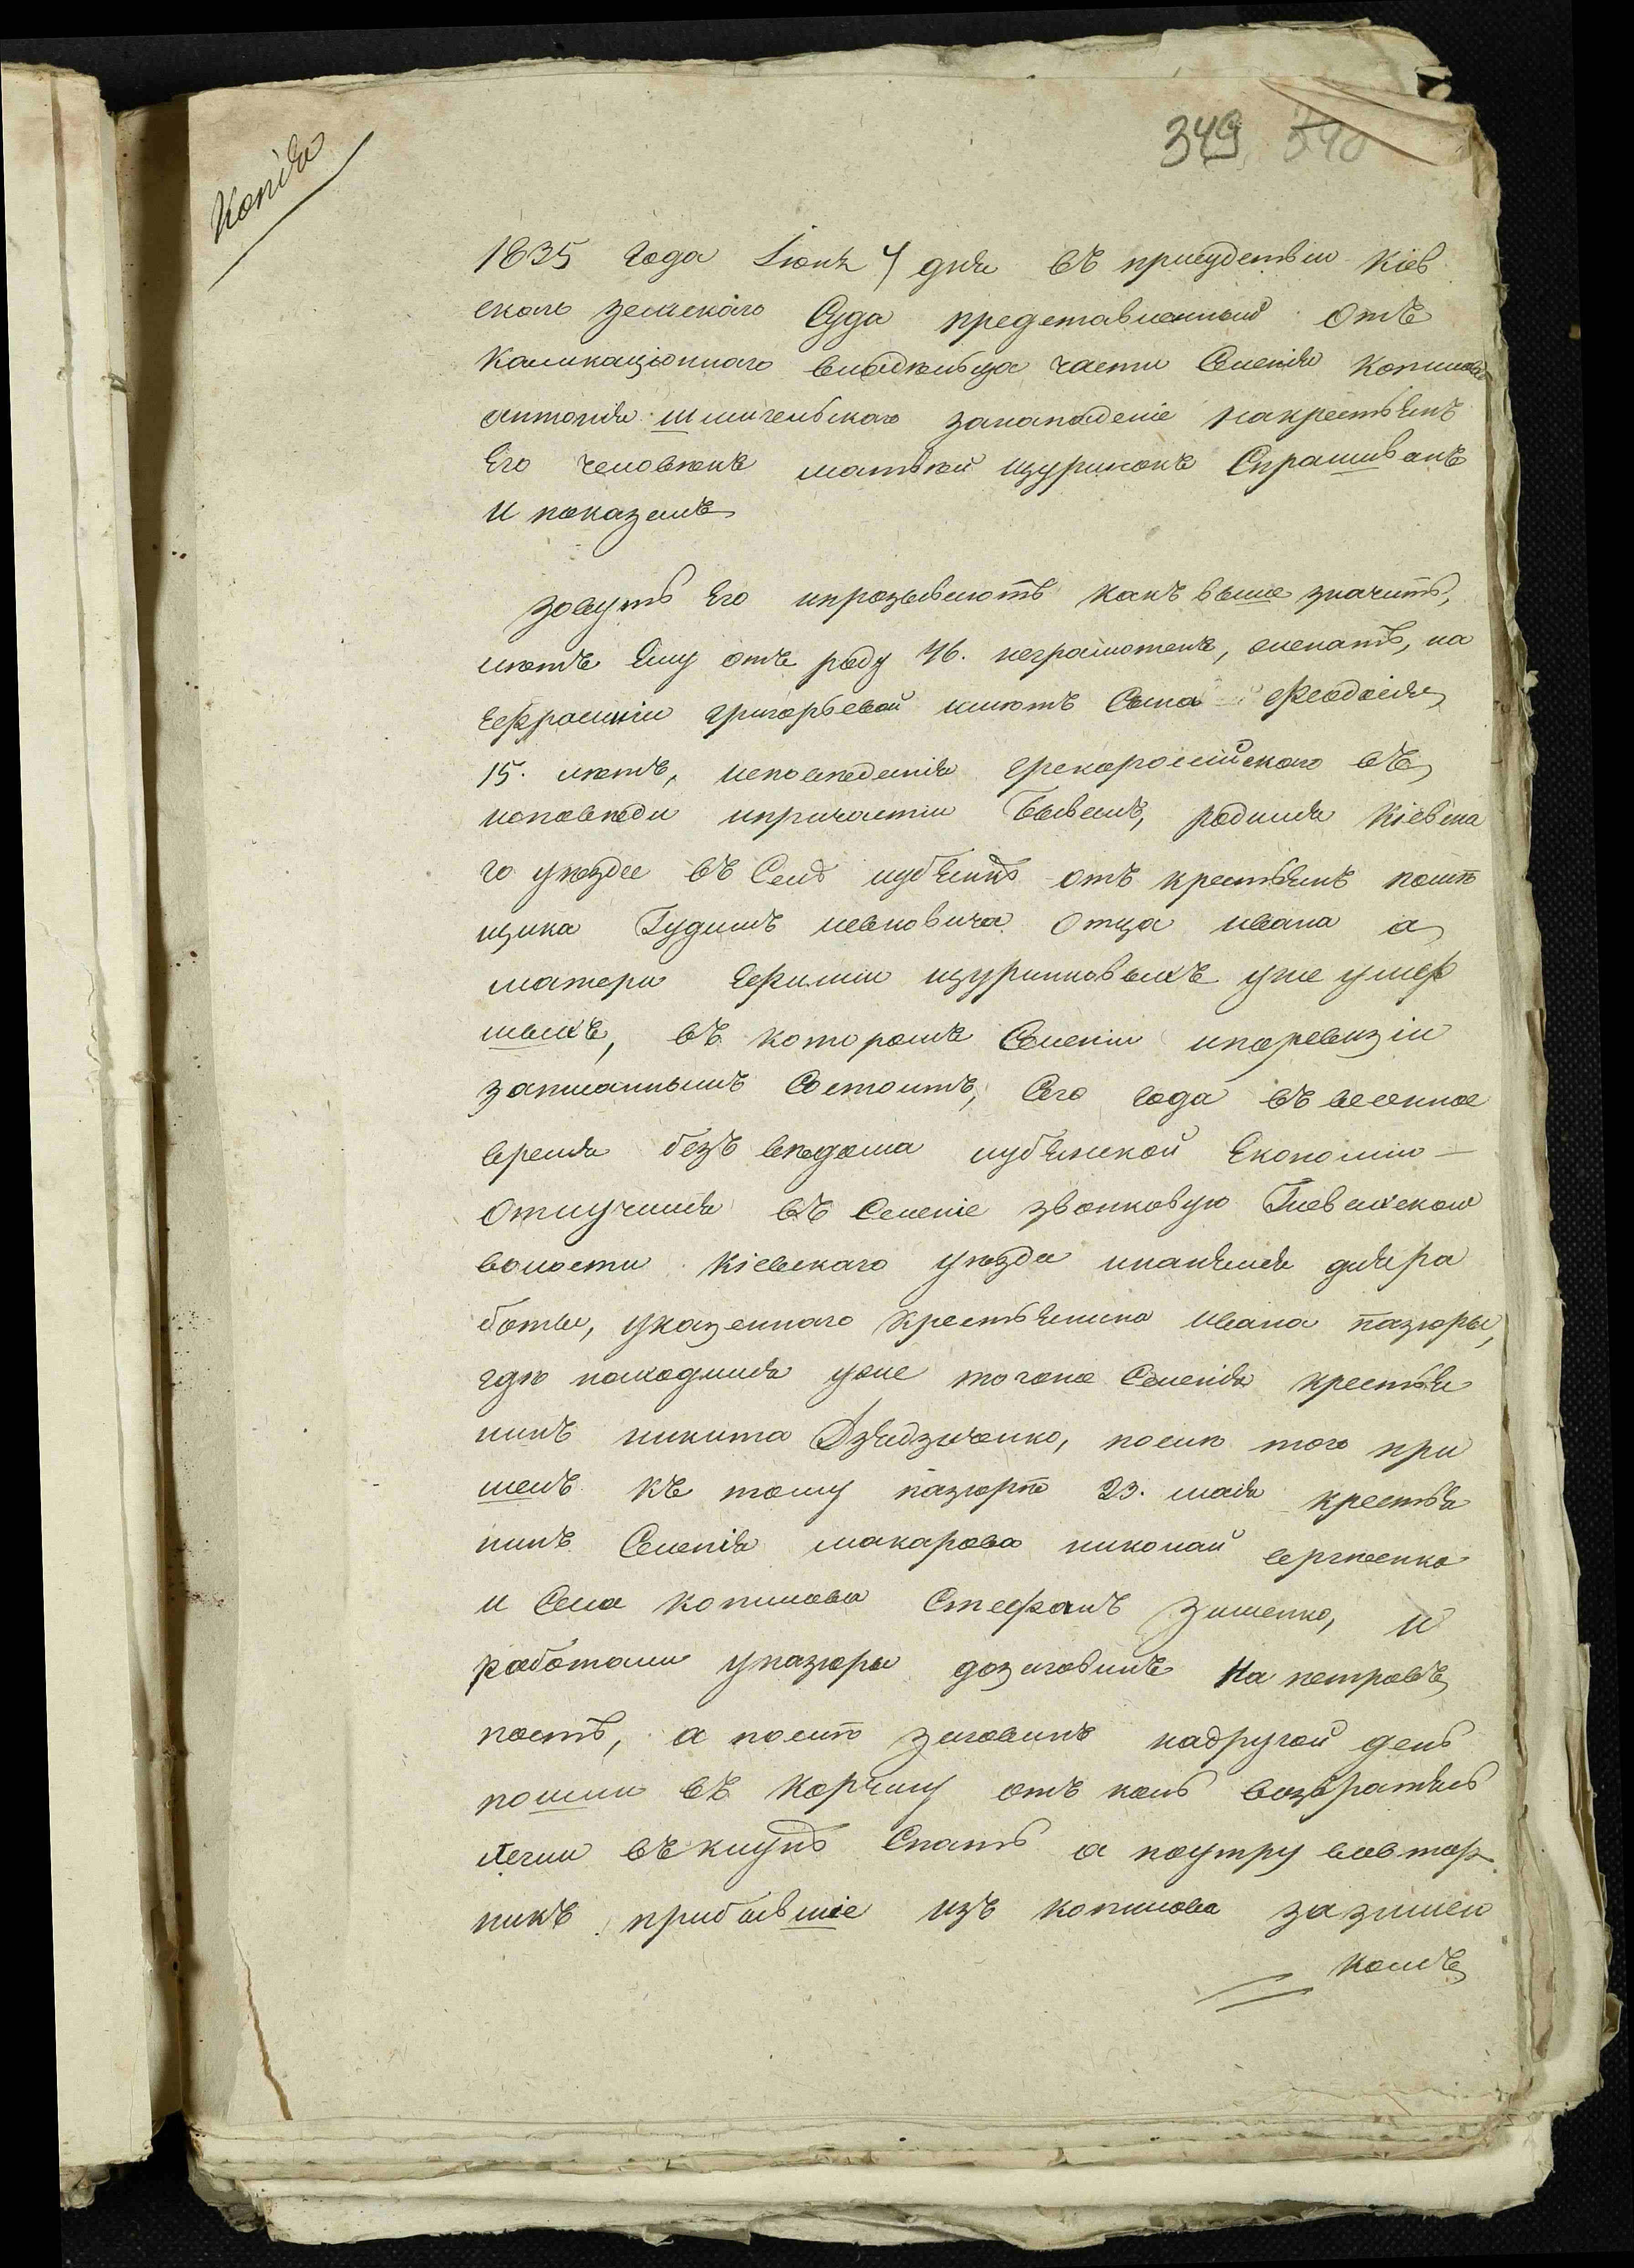 349 340
Копія
1835 года Іюня 4 дня въ присудствіи Кіев
скаго земскаго Суда представленный отъ
Каликаціоннаго владѣльца части Селенія Копилова
антонія шмигельскаго занападеніе накрестьянъ
Его человѣкъ матвѣй щуринокъ Спрашиванъ
и показалъ
зовутъ Его ипрозываютъ какъ выше значитъ,
лѣтъ Ему отъ роду 46. неграмотенъ, женатъ, на
Ефросиніи григорьевой имѣетъ Сына Феодосія
15. лѣтъ, исповѣданія грекоросійского въ
исповѣди ипричастіи бываетъ, родился Кіевска
го уѣзда въ Селѣ лубянкѣ отъ крестьянъ помѣ
щика Гудимъ левковича отца ивана а
матери Ефиміи щуринковыхъ уже умер
шыхъ, въ которомъ Селеніи иповревизіи
записаннымъ Состоитъ, Сего года въ весенное
время безъ вѣдома лубянской Економіи
отлучился въ Селеніе звонковую Глевахской
волости Кіевскаго уѣзда инанялся для ра
боты, указенного Крестьянина ивана пазюры,
гдѣ находился уже тогоже Селенія крестья
нинъ никита Дзядзюченко, послѣ того при
шелъ къ тому пазюрѣ 23. мая крестья
нинъ Селенія макарова николай сергѣенко
и Села Копилова Стефанъ Зиленко, и
работали упазюры дозаговинъ на петровъ
постъ, а послѣ заговинъ надругой день
пошли въ Корчму отъ коль возвратясь
легли въ клунѣ Спать а поутру вовтор
никъ прибывшіе изъ копилова зазилен
комъ